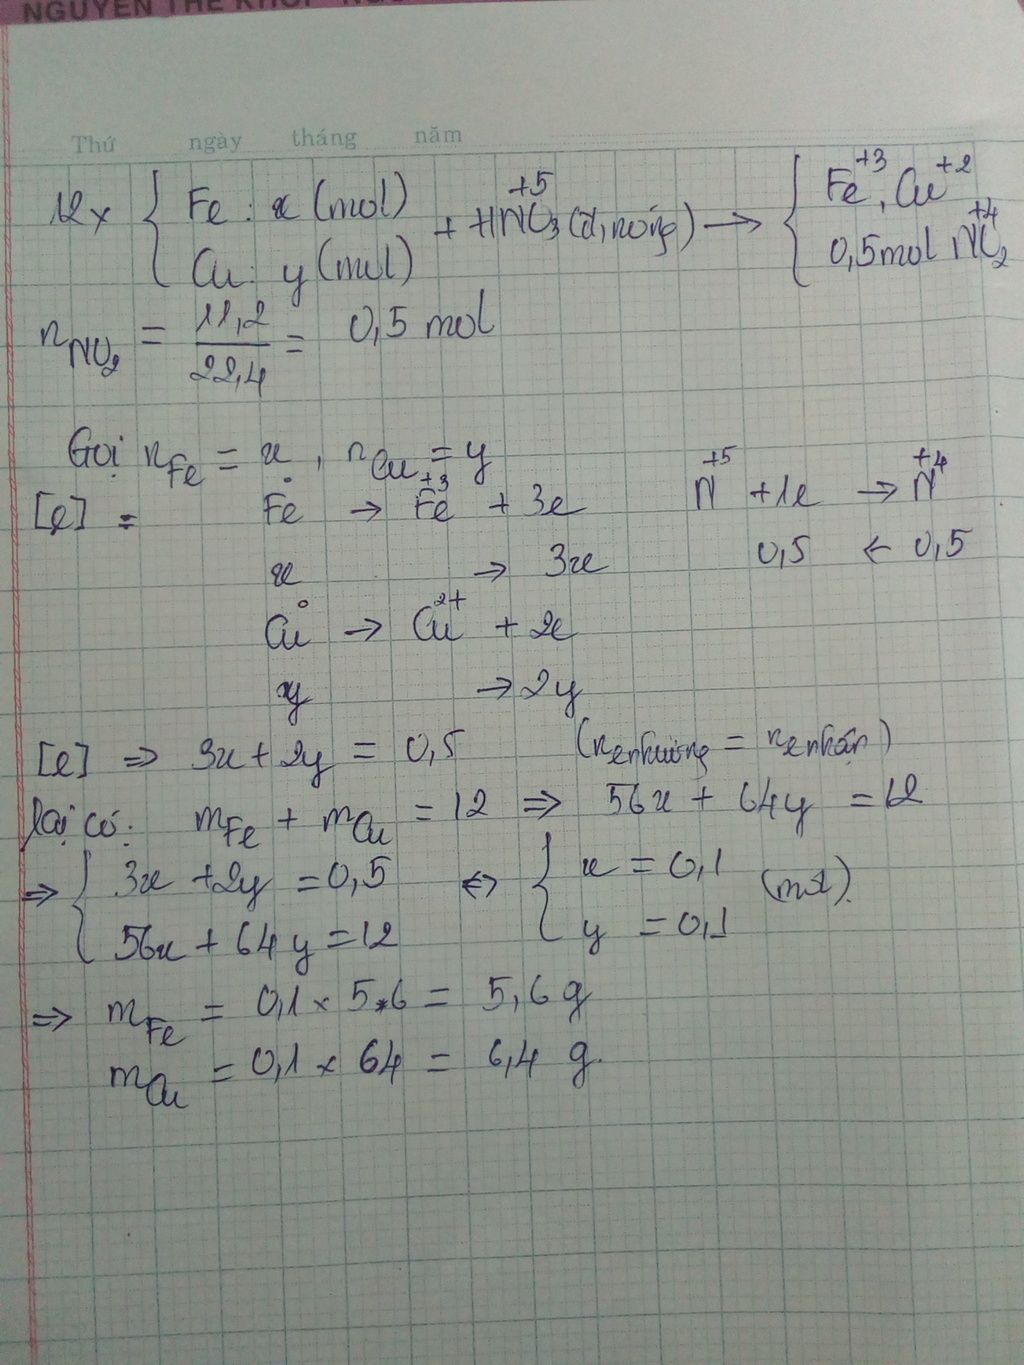 NGUYEN THE KHOI
Thứ ngày tháng năm
12x { Fe : x (mol) + HNO₃ (đ, nóng) → { Fe, Cu
+5 +3 +2
Cu : y (mol) 0,5 mol NO₂
+4
n NO₂ = 11,2 / 22,4 = 0,5 mol
Gọi n Fe = x , n Cu = y
[e] = Fe⁰ → Fe⁺³ + 3e N⁺⁵ + 1e → N⁺⁴
x → 3x 0,5 ← 0,5
Cu⁰ → Cu²⁺ + 2e
y → 2y
[e] ⇒ 3x + 2y = 0,5 (n e nhường = n e nhận)
Lại có: m Fe + m Cu = 12 ⇒ 56x + 64y = 12
⇒ { 3x + 2y = 0,5 ⇔ { x = 0,1 (mol).
56x + 64y = 12 y = 0,1
⇒ m Fe = 0,1 × 56 = 5,6 g
m Cu = 0,1 × 64 = 6,4 g.